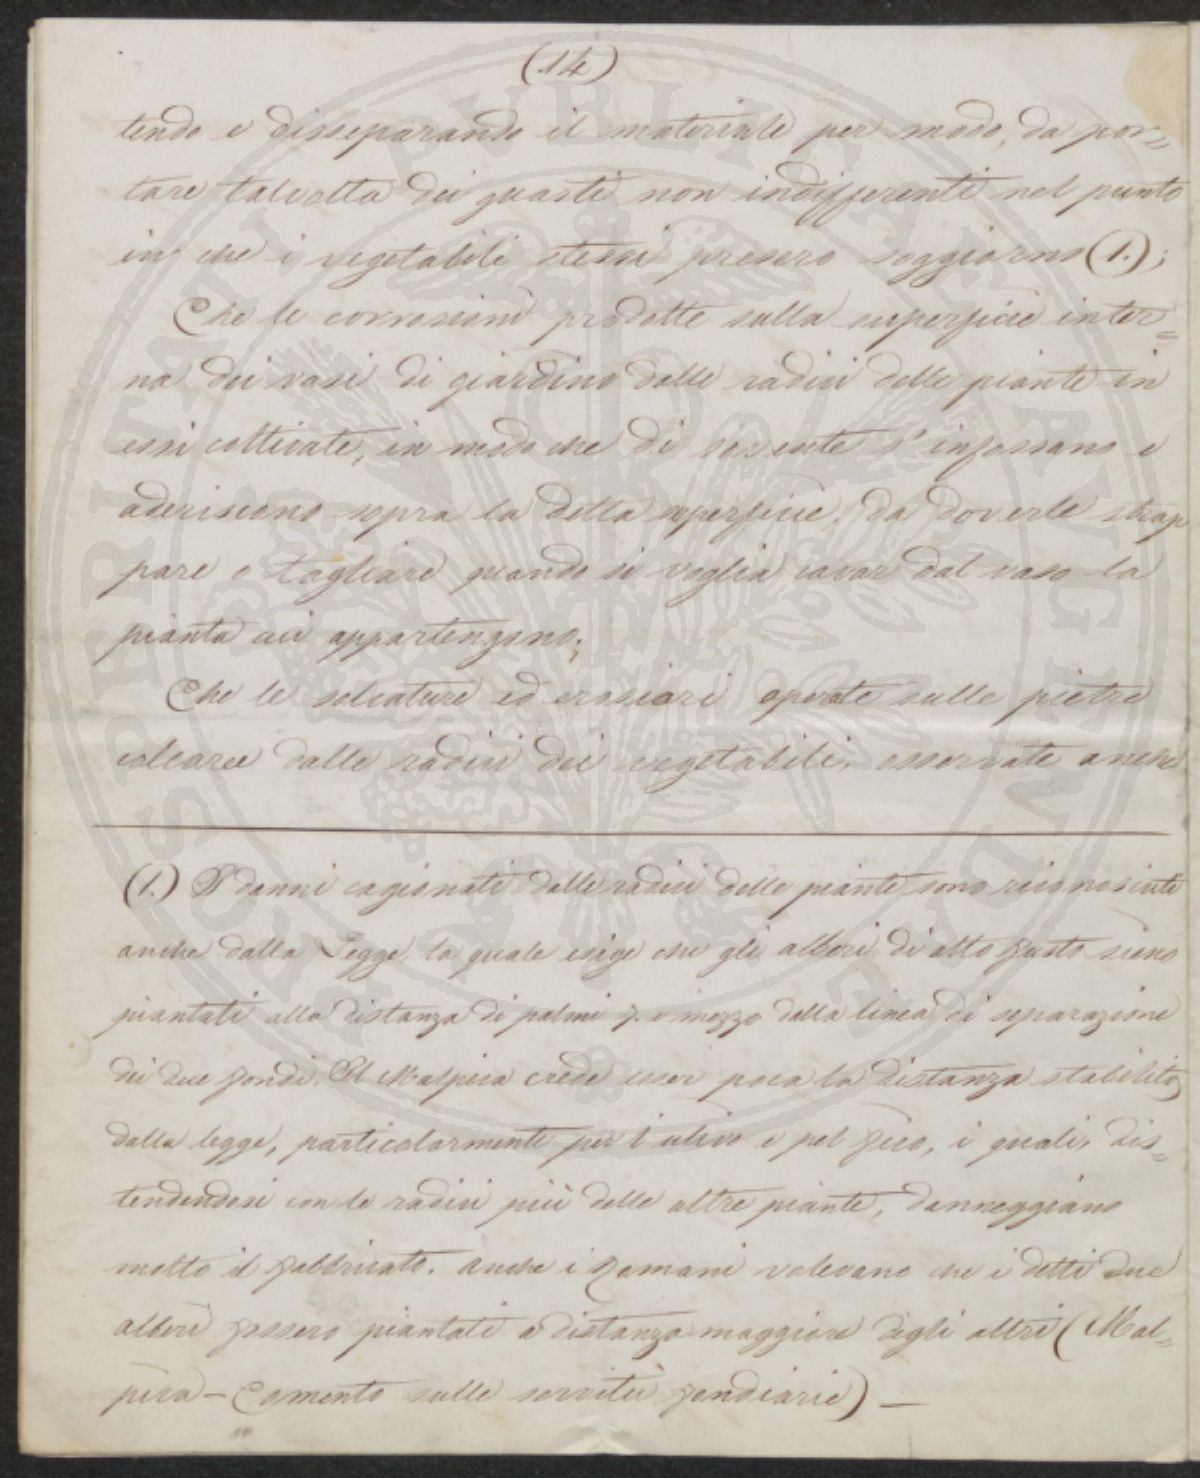 (14)
tendo e disseparando il materiale per modo, da por=
tare talvolta dei guasti non indifferenti nel punto
in che i vegetabili stessi presero soggiorno (1.);
Che le corrosioni prodotte sulla superficie inter=
na dei vasi di giardino dalle radici delle piante in
essi coltivate, in modo che di sovente s'infossano e
aderiscono sopra la detta superficie, da doverle strap
pare o tagliare quando si voglia cavar dal vaso la
pianta cui appartengono;
Che le solcature ed erosioni operate sulle pietre
calcaree dalle radici dei vegetabili, osservate anche
(1.) I danni cagionati dalle radici delle piante sono riconosciute
anche dalla Legge la quale esige che gli alberi di alto fusto sieno
piantati alla distanza di palmi 7. e mezzo dalla linea di separazione
dei due fondi. Il Malpica crede esser poca la distanza stabilita
dalla legge, particolarmente per l'ulivo e pel fico, i quali, dis=
tendendosi con le radici più delle altre piante, danneggiano
molto il fabbricato. Anche i Romani volevano che i detti due
alberi fossero piantati a distanza maggiore degli altri (Mal=
pica - Comento sulle servitù fondiarie) —
SPERITATI PUBLICAE